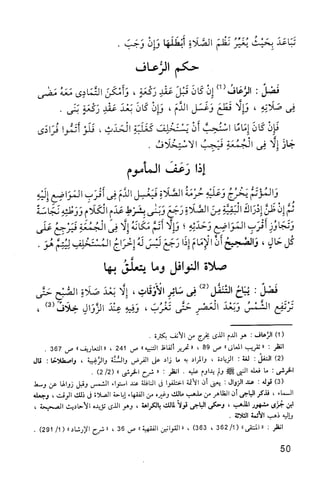 تَبَاعَدَ بِحَيْثُ يُغَيِّرُ نَظْمَ الصَّلَاةِ أَبْطَلَهَا وَإِنْ وَجَبَ .
حكم الرعاف
فَصْلٌ : الرُّعَافُ (1) إِنْ كَانَ قَبْلَ عَقْدِ رَكْعَةٍ ، وَأَمْكَنَ التَّمَادِي مَعَهُ مَضَى
فِي صَلَاتِهِ ، وَإِلَّا قَطَعَ وَغَسَلَ الدَّمَ ، وَإِنْ كَانَ بَعْدَ عَقْدِ رَكْعَةٍ بَنَى .
فَإِنْ كَانَ إِمَامًا اسْتُحِبَّ أَنْ يَسْتَخْلِفَ كَغَلَبَةِ الْحَدَثِ ، فَلَوْ أَتَمُّوا فُرَادَى
جَازَ إِلَّا فِي الْجُمُعَةِ فَيَجِبُ الِاسْتِخْلَافُ .
إذا رَعَفَ المأموم
وَالْمُؤْتَمُّ يَخْرُجُ وَعَلَيْهِ حُرْمَةُ الصَّلَاةِ فَيَغْسِلُ الدَّمَ فِي أَقْرَبِ الْمَوَاضِعِ إِلَيْهِ
ثُمَّ إِنْ ظَنَّ إِدْرَاكَ الْبَقِيَّةِ مِنَ الصَّلَاةِ رَجَعَ وَبَنَى بِشَرْطِ عَدَمِ الْكَلَامِ وَوَطْئِهِ نَجَاسَةً
وَتَجَاوُزِ أَقْرَبِ الْمَوَاضِعِ وَحَدَثِهِ ؛ وَإِلَّا أَتَمَّ مَكَانَهُ إِلَّا فِي الْجُمُعَةِ فَيَرْجِعُ عَلَى
كُلِّ حَالٍ ، وَالصَّحِيحُ أَنَّ الْإِمَامَ إِذَا رَجَعَ لَيْسَ لَهُ إِخْرَاجُ الْمُسْتَخْلَفِ لِيُتِمَّ هُوَ .
صلاة النوافل وما يتعلَّق بها
فَصْلٌ : يُبَاحُ التَّنَفُّلُ (2) فِي سَائِرِ الْأَوْقَاتِ ، إِلَّا بَعْدَ صَلَاةِ الصُّبْحِ حَتَّى
تَرْتَفِعَ الشَّمْسُ وَبَعْدَ الْعَصْرِ حَتَّى تَغْرُبَ ، وَفِيهِ عِنْدَ الزَّوَالِ خِلَافٌ (3) ،
(1) الرعاف : هو الدم الذي يخرج من الأنف بكثرة .
انظر : « تقريب المعاني » ص 89 ، « تحرير ألفاظ التنبيه » ص 241 ، « التعاريف » ص 367 .
(2) النفل : لغة : الزيادة ، والمراد به ما زاد على الفرض والسُّنة والرَّغيبة ، واصطلاحًا : قال
الخرشي : ما فعله النبي ﷺ ولم يداوم عليه . انظر : « شرح الخرشي » (2/ 2) .
(3) قوله : عند الزوال : يعني أن الأئمة اختلفوا في النافلة عند استواء الشمس وقبل زوالها عن وسط
السماء ، فذكر الباجي أن الظاهر من مذهب مالك وغيره من الفقهاء إباحة الصلاة في ذلك الوقت ، وجعله
ابن جُزَي مشهور المذهب ، وحكى الباجي قولاً لمالك بالكراهة ، وهو الذي تؤيده الأحاديث الصحيحة ،
وإليه ذهب الأئمة الثلاثة .
انظر : « المنتقى » (1/ 362 ، 363) ، « القوانين الفقهية » ص 36 ، « شرح الإرشاد » (1/ 291) .
50